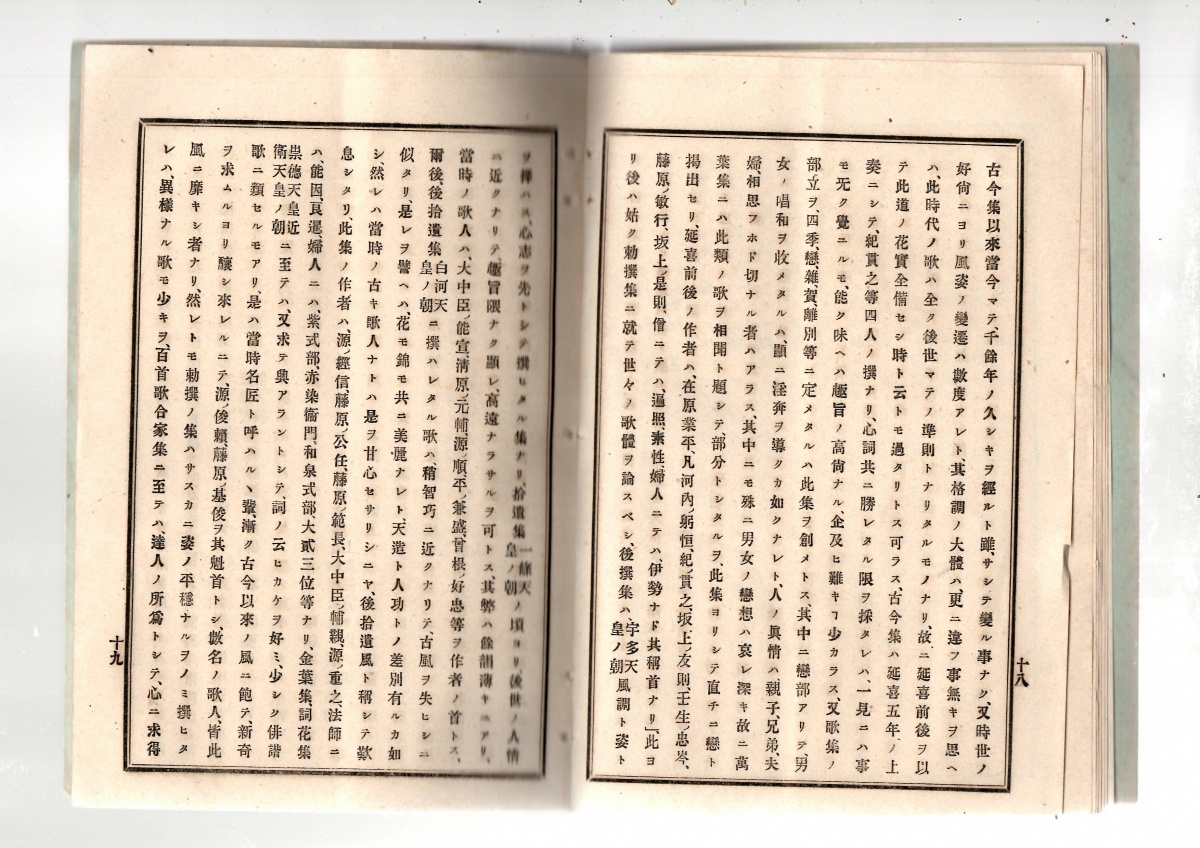 古今集以來當今マテ、千餘年ノ久シキヲ經ルト雖、サシテ變ル事ナク、又時世ノ
好尙ニヨリ風姿ノ變遷ハ數度アレト、其格調ノ大體ハ更ニ違フ事無キヲ思ヘ
ハ、此時代ノ歌ハ全ク後世マテノ準則トナリタルモノナリ、故ニ延喜前後ヲ以
テ此道ノ花實全備セシ時ト云トモ過タリトス可ラス、古今集ハ延喜五年ノ上
奏ニシテ、紀貫之等四人ノ撰ナリ、心詞共ニ勝レタル限ヲ採タレハ、一見ニハ事
モ无ク覺ユルモ、能ク味ヘハ趣旨ノ高尙ナル、企及ヒ難キヿ少カラス又歌集ノ
部立ヲ、四季、戀、雜、賀、離別等ニ定メタルハ此集ヲ創メトス其中ニ戀部アリテ、男
女ノ唱和ヲ收メタルハ、顯ニ淫奔ヲ導クカ如クナレト、人ノ眞情ハ親子、兄弟、夫
婦、相思フホド切ナル者ハアラス、其中ニモ殊ニ男女ノ戀想ハ哀レ深キ故ニ萬
葉集ニハ此類ノ歌ヲ相聞ト題シテ、部分トシタルヲ、此集ヨリシテ直チニ戀ト
揚出セリ、延喜前後ノ作者ハ、在原業平、凡河內ノ躬恒、紀ノ貫之、坂上ノ友則、壬生ノ忠岑、
藤原ノ敏行、坂上ノ是則、僧ニテハ、遍照、素性、婦人ニテハ、伊勢ナド其稱首ナリ、此ヨ
リ後ハ姑ク勅撰集ニ就テ世々ノ歌體ヲ論スベシ、後撰集ハ宇多天皇ノ朝風調ト姿ト
十八
ヲ擇ハス、心志ヲ先トシテ撰ヒタル集ナリ、拾遺集一條天皇ノ朝ノ頃ヨリ、後世ノ人情
ハ近クナリテ、趣旨隈ナク顯レ、高遠ナラサルヲ可トス、其弊ハ餘韻薄キニアリ、
當時ノ歌人ハ、大中臣ノ能宣、淸原ノ元輔、源ノ順、平ノ兼盛、曾根ノ好忠等ヲ作者ノ首トス、
爾後後拾遺集白河天皇ノ朝ニ撰ハレタル歌ハ、稍智巧ニ近クナリテ、古風ヲ失ヒシニ
似タリ、是レヲ譬ヘハ、花モ錦モ共ニ美麗ナレト、天造ト人功トノ差別有ルカ如
シ、然レハ當時ノ古キ歌人ナトハ是ヲ甘心セサリシニヤ、後拾遺風ト稱シテ歎
息シタリ、此集ノ作者ハ、源ノ經信、藤原ノ公任、藤原ノ範長、大中臣ノ輔親、源ノ重之、法師ニ
ハ、能因、良暹、婦人ニハ、紫式部、赤染衞門、和泉式部、大貳三位等ナリ、金葉集、詞花集
崇德天皇近衛天皇ノ朝ニ至テハ、又求テ興アラントシテ、詞ノ云ヒカケヲ好ミ、少シク俳諧
歌ニ類セルモアリ、是ハ當時名匠ト呼ハルヽ輩、漸ク古今以來ノ風ニ飽テ、新奇
ヲ求ムルヨリ釀シ來レルニテ、源ノ俊賴、藤原ノ基俊ヲ其魁首トシ、數名ノ歌人、皆此
風ニ靡キシ者ナリ、然レトモ勅撰ノ集ハサスカニ姿ノ平穩ナルヲノミ撰ヒタ
レハ、異樣ナル歌モ少キヲ、百首歌合家集ニ至テハ、達人ノ所爲トシテ、心ニ求得
十九